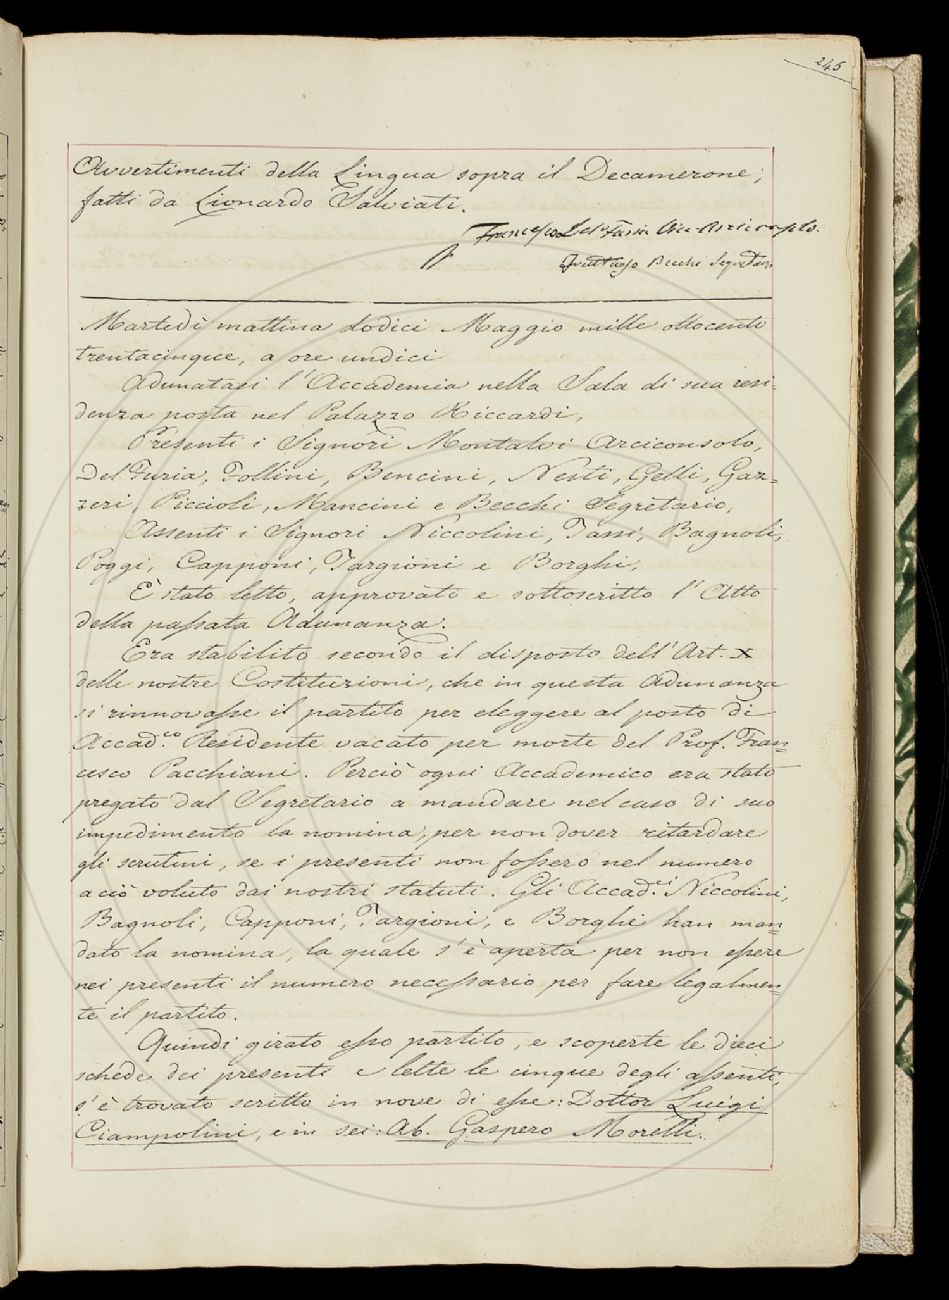 245
Avvertimenti della Lingua sopra il Decamerone,
fatti da Lionardo Salviati.
Francesco Del Furia Vice-Arciconsolo.
Fruttuoso Becchi Segretario
Martedì mattina dodici Maggio mille ottocento
trentacinque, a ore undici
Adunatasi l'Accademia nella Sala di sua resi-
denza posta nel Palazzo Riccardi,
Presenti i Signori Montalvi Arciconsolo,
Del Furia, Follini, Bencini, Nesti, Gelli, Gaz=
zeri, Piccioli, Mancini e Becchi Segretario,
Assenti i Signori Niccolini, Tassi, Bagnoli,
Poggi, Capponi, Targioni e Borghi,
È stato letto, approvato e sottoscritto l'Atto
della passata Adunanza.
Era stabilito secondo il disposto dell'Art. X
delle nostre Costituzioni, che in questa Adunanza
si rinnovasse il partito per eleggere al posto di
Accad.co Residente vacato per morte del Prof. Fran=
cesco Pacchiani. Perciò ogni Accademico era stato
pregato dal Segretario a mandare nel caso di suo
impedimento la nomina, per non dover ritardare
gli scrutini, se i presenti non fossero nel numero
a ciò voluto dai nostri statuti. Gli Accad.ci Niccolini,
Bagnoli, Capponi, Targioni, e Borghi han man=
dato la nomina, la quale s'è aperta per non essere
nei presenti il numero necessario per fare legalmen=
te il partito.
Quindi girato esso partito, e scoperte le dieci
schede dei presenti e lette le cinque degli assenti,
s'è trovato scritto in nove di esse: Dottor Luigi
Ciampolini, e in sei: Ab. Gaspero Morelli.